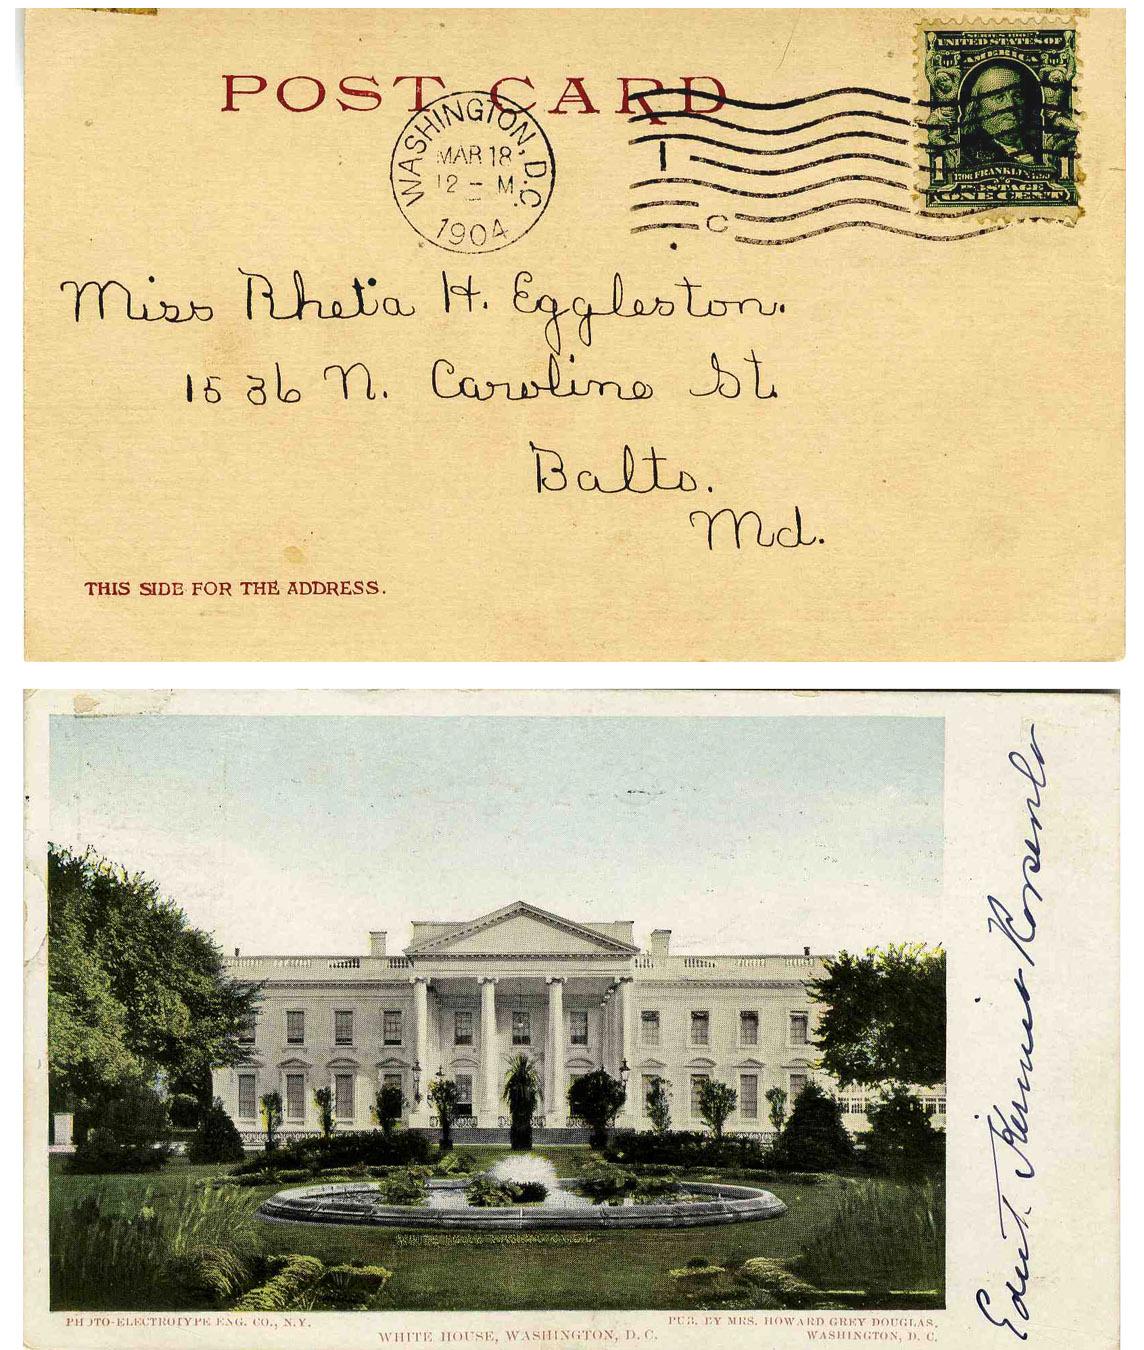 POST CARD
WASHINGTON, D.C.
MAR 18
12 - M
1904
I
C
SERIES 1902
UNITED STATES OF
AMERICA
1 1
FRANKLIN
POSTAGE
ONE CENT
Miss Rheta H. Eggleston.
1536 N. Caroline St.
Balto.
Md.
THIS SIDE FOR THE ADDRESS.
WHITE HOUSE, WASHINGTON, D.C.
PHOTO-ELECTROTYPE ENG. CO., N.Y.
WHITE HOUSE, WASHINGTON, D. C.
PUB. BY MRS. HOWARD GREY DOUGLAS,
WASHINGTON, D. C.